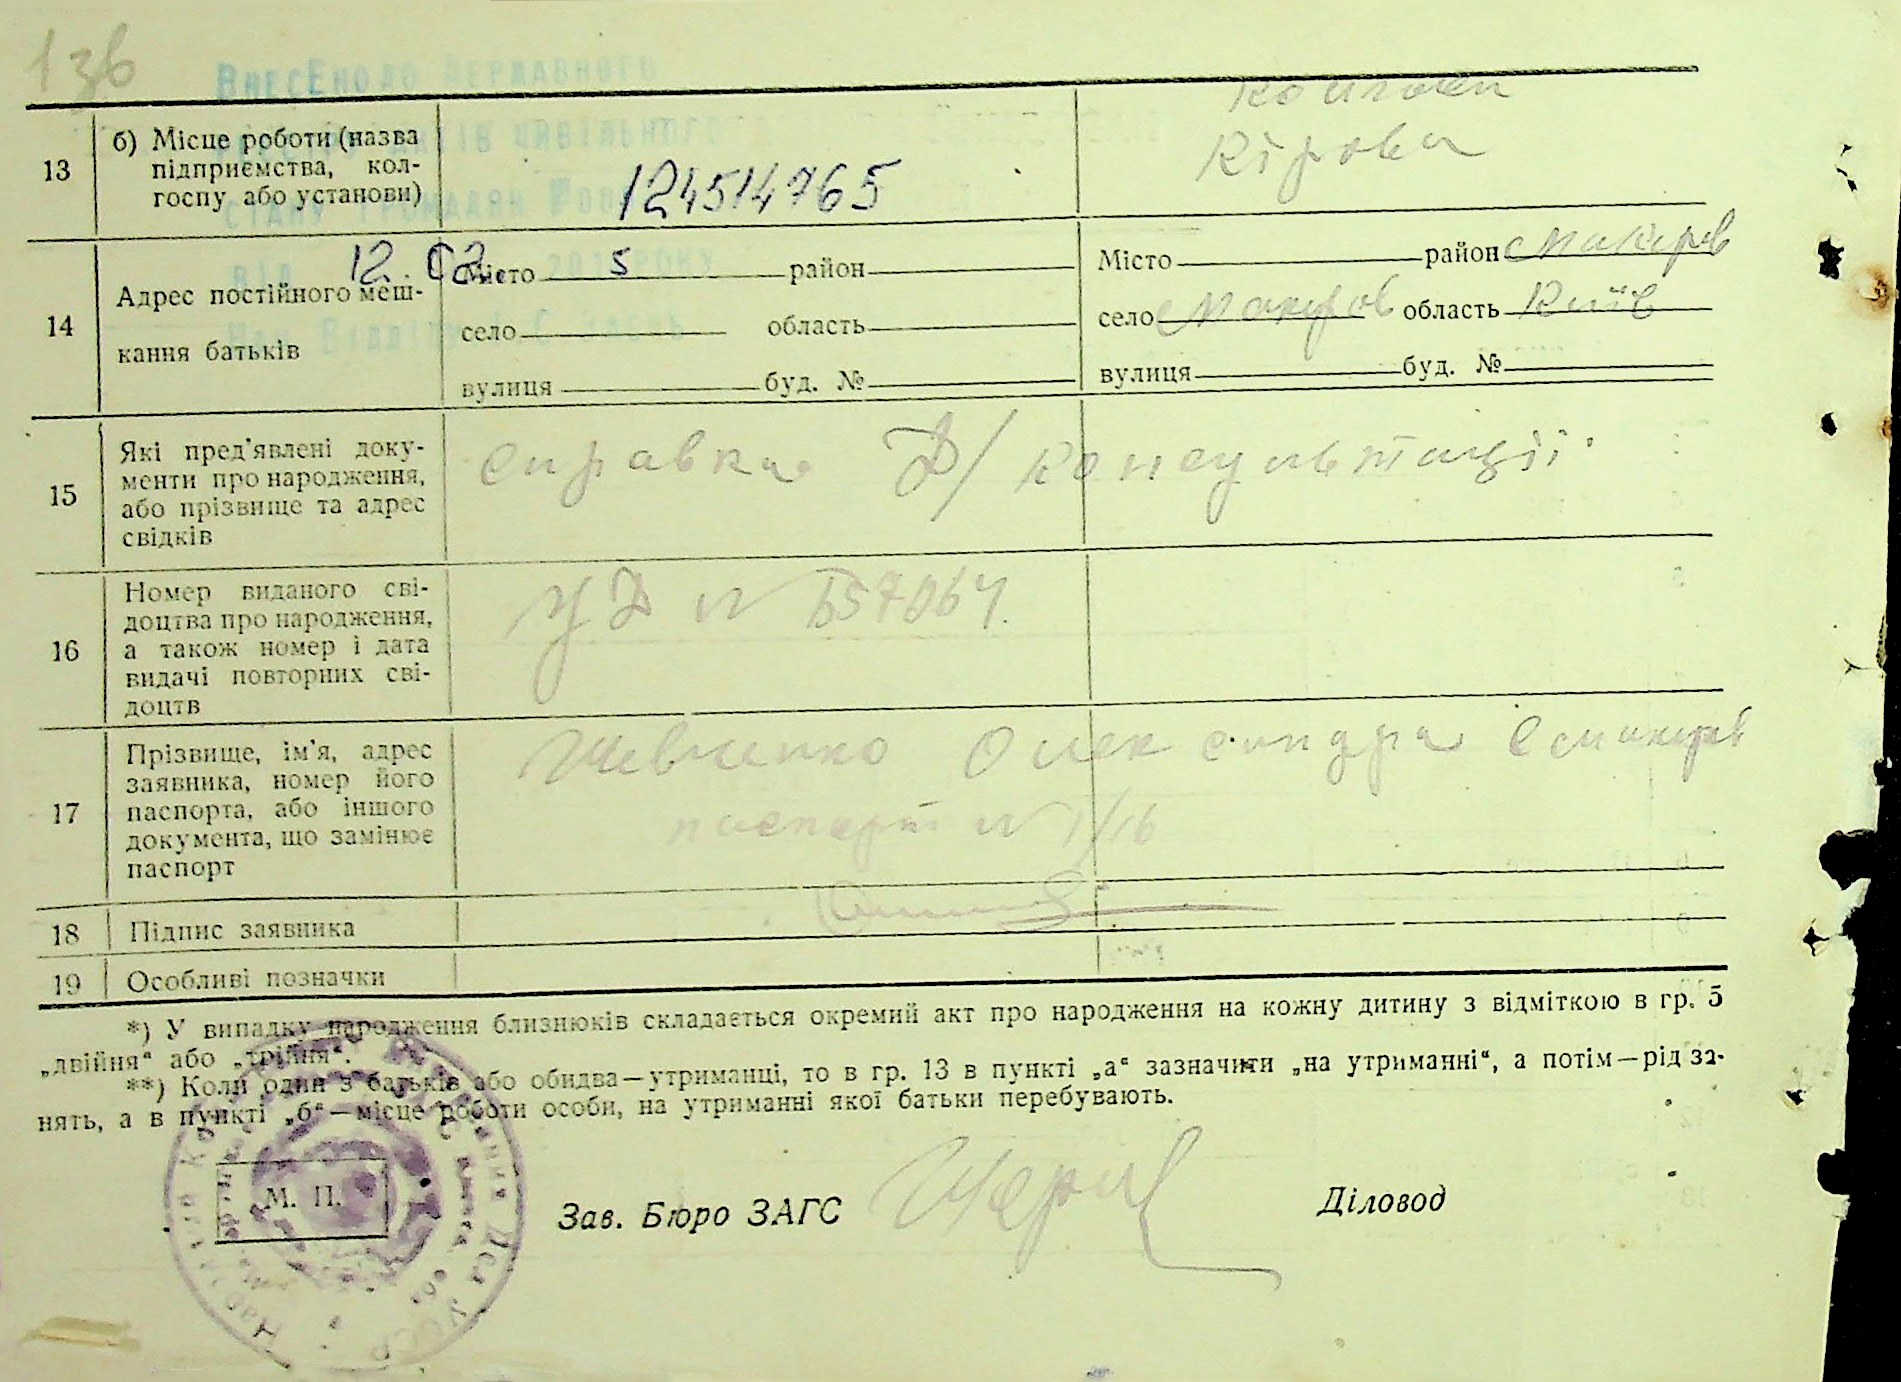 136
ВНЕСЕНО ДО ДЕРЖАВНОГО
АКТІВ ЦИВІЛЬНОГО
СТАНУ ГРОМАДЯН
124514765
ВІД 12.02. 2015 РОКУ
13 б) Місце роботи (назва підприємства, колгоспу або установи)
Колгосп
Кірова
14 Адрес постійного меш-
кання батьків
Місто район
село область
вулиця буд. №
Місто район Макарів
село Макаров область Київ
вулиця буд. №
15 Які пред'явлені доку-
менти про народження,
або прізвище та адрес
свідків
справка Д/консультації
16 Номер виданого сві-
доцтва про народження,
а також номер і дата
видачі повторних сві-
доцтв
УД № 657064
17 Прізвище, ім'я, адрес
заявника, номер його
паспорта, або іншого
документа, що замінює
паспорт
Шевченко Олександра с Макарів
паспорт №
18 Підпис заявника
19 Особливі позначки
*) У випадку народження близнюків складається окремий акт про народження на кожну дитину з відміткою в гр. 5
„двійня“ або „трійня“.
**) Коли один з батьків або обидва—утриманці, то в гр. 13 в пункті „а“ зазначити „на утриманні“, а потім—рід за-
нять, а в пункті „б“—місце роботи особи, на утриманні якої батьки перебувають.
М. П.
Зав. Бюро ЗАГС
Діловод